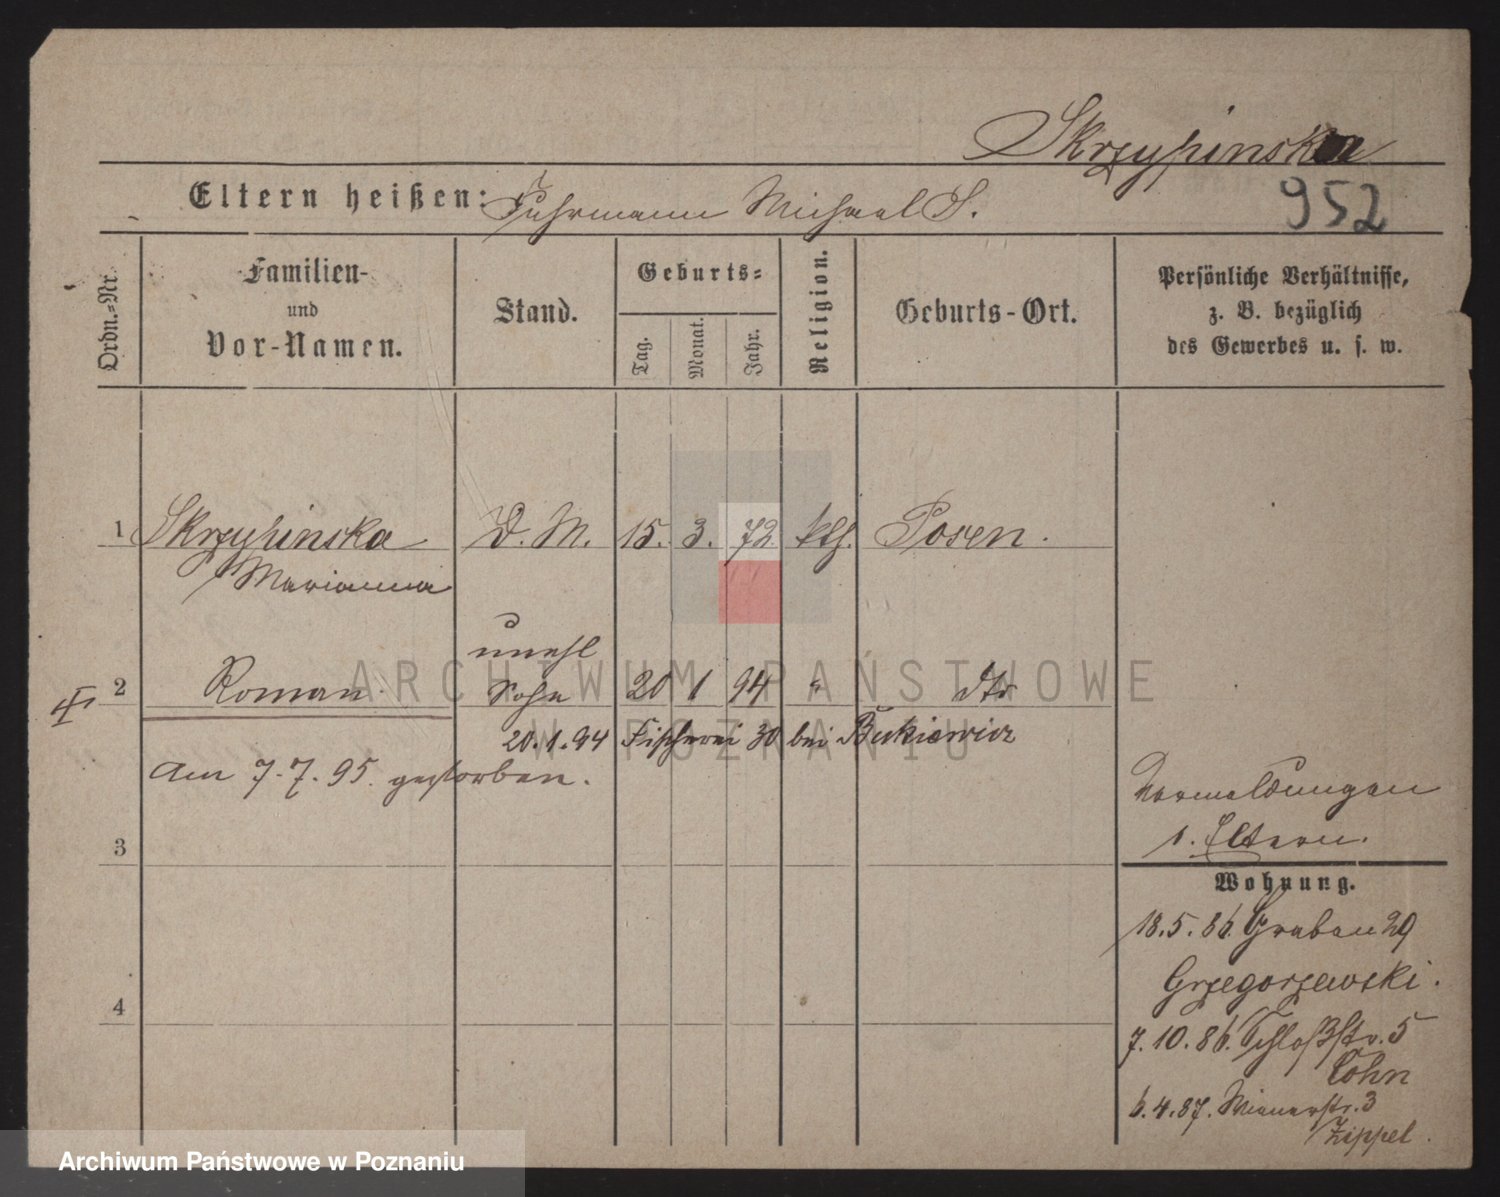 Skrzypinska
Eltern heißen: Fuhrmann Michael S.
952
Ordn.=Nr.
Familien-
und
Vor-Namen.
Stand.
Geburts=
Tag.
Monat.
Jahr.
Religion.
Geburts-Ort.
Persönliche Verhältnisse,
z. B. bezüglich
des Gewerbes u. s. w.
1 Skrzypinska D. M. 15. 3. 72. kth. Posen.
Marianna
unehl
2 Roman Sohn 20 1 94 " dto
20.1.94 Fischerei 30 bei Bukiewicz
Am 7.7.95. gestorben.
3
4
Vormeldungen
s. Eltern.
Wohnung.
18.5.86. Graben 29
Grzegorzewski.
7.10.86. Schloßstr. 5
Cohn
6.4.87. Wienerstr. 3
Zippel.
ARCHIWUM PAŃSTWOWE
W POZNANIU
Archiwum Państwowe w Poznaniu